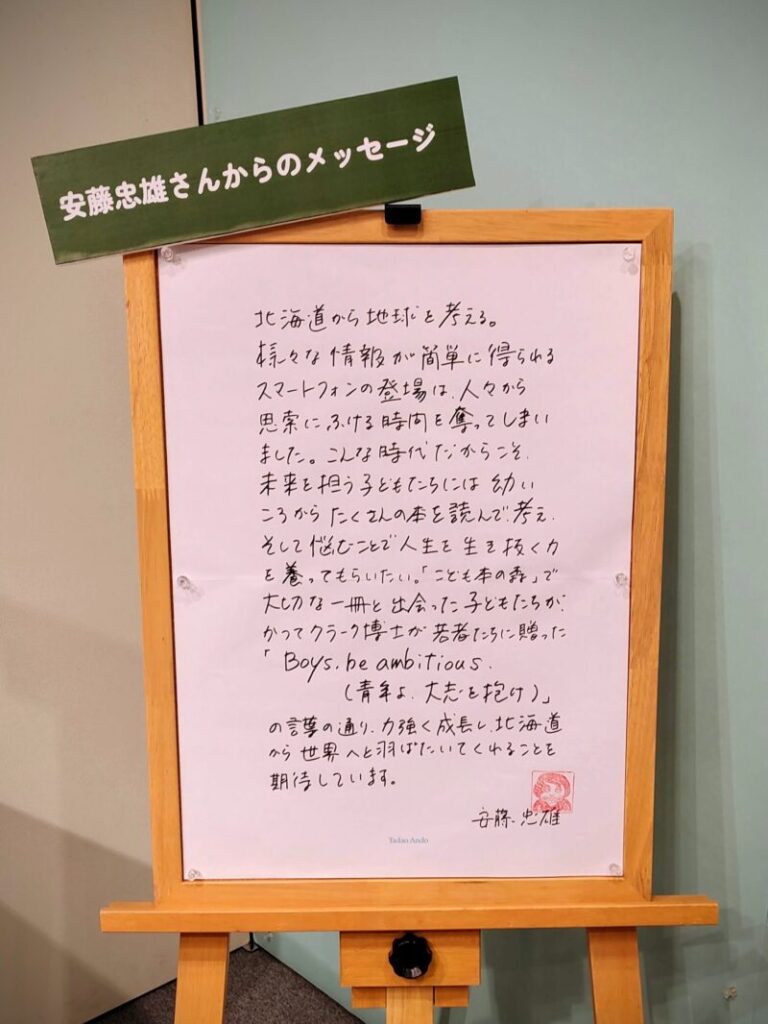 安藤忠雄さんからのメッセージ
北海道から地球を考える。
様々な情報が簡単に得られる
スマートフォンの登場は、人々から
思索にふける時間を奪ってしまい
ました。こんな時代だからこそ、
未来を担う子どもたちには幼い
ころからたくさんの本を読んで、考え、
そして悩むことで人生を生き抜く力
を養ってもらいたい。「こども本の森」で
大切な一冊と出会った子どもたちが、
かつてクラーク博士が若者たちに贈った
「Boys, be ambitious.
(青年よ、大志を抱け)」
の言葉の通り、力強く成長し、北海道
から世界へと羽ばたいてくれることを
期待しています。
安藤忠雄
Tadao Ando